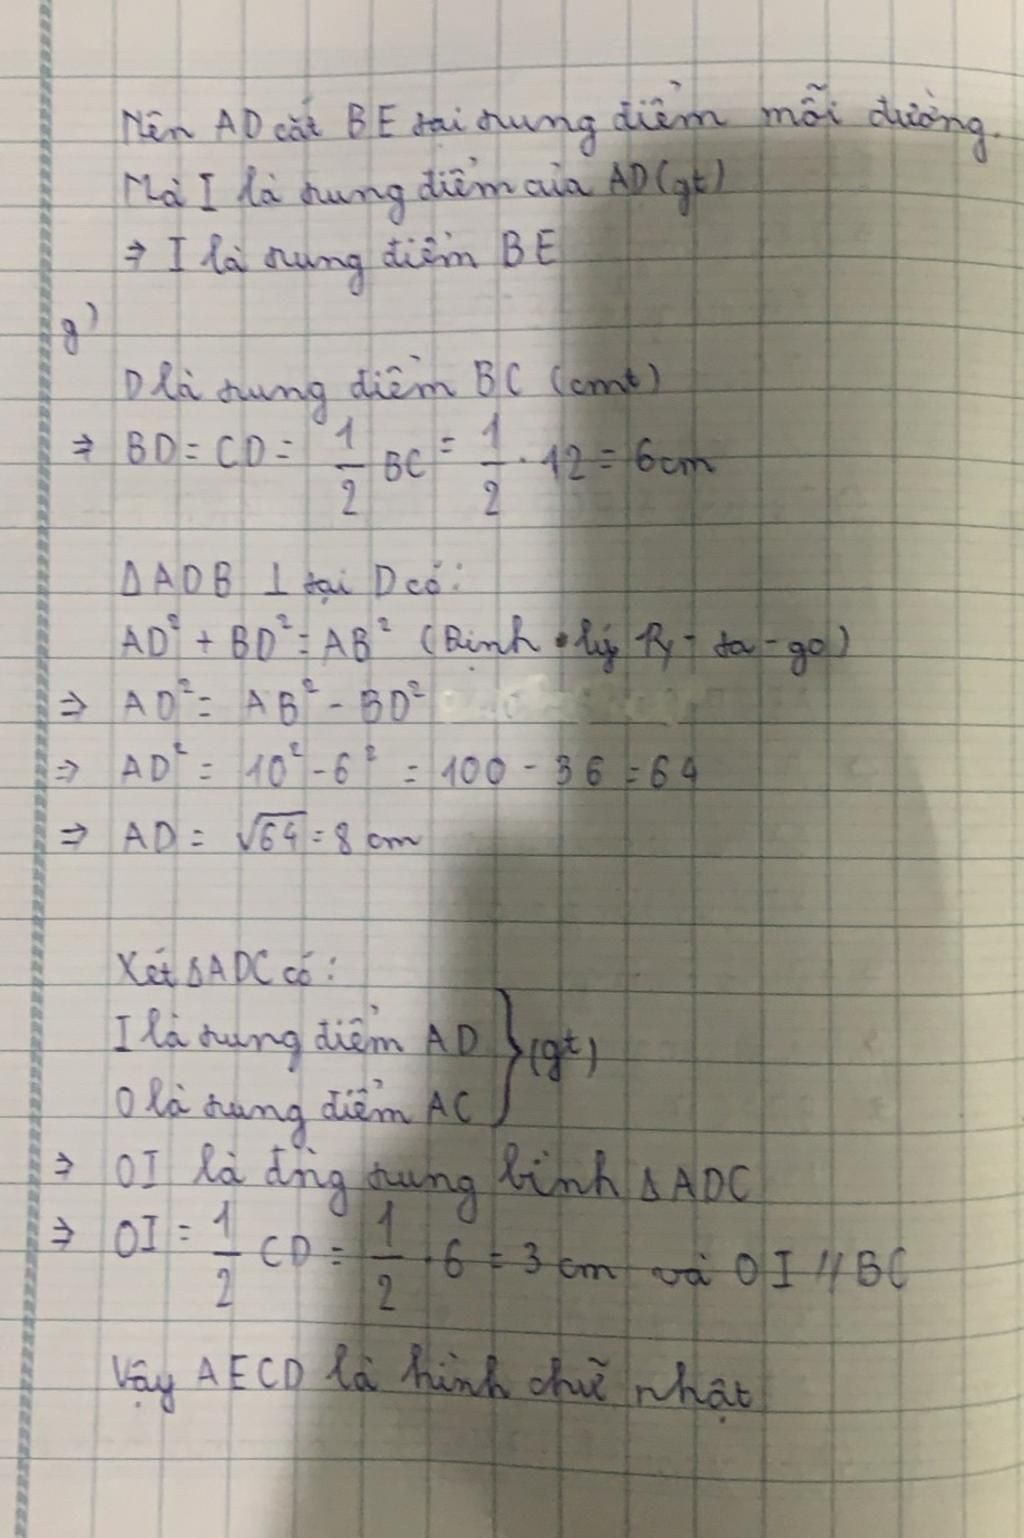 Nên AD cắt BE tại trung điểm mỗi đường.
Mà I là trung điểm của AD (gt)
⇒ I là trung điểm BE
g)
D là trung điểm BC (cmt)
⇒ BD = CD = 1/2 BC = 1/2 . 12 = 6cm
Δ ADB ⊥ tại D có:
AD² + BD² = AB² (Định lý Py - ta - go)
⇒ AD² = AB² - BD²
⇒ AD² = 10² - 6² = 100 - 36 = 64
⇒ AD = √64 = 8 cm
Xét Δ ADC có:
I là trung điểm AD } (gt)
O là trung điểm AC
⇒ OI là đng trung bình Δ ADC
⇒ OI = 1/2 CD = 1/2 . 6 = 3 cm và OI // BC
Vậy AECD là hình chữ nhật